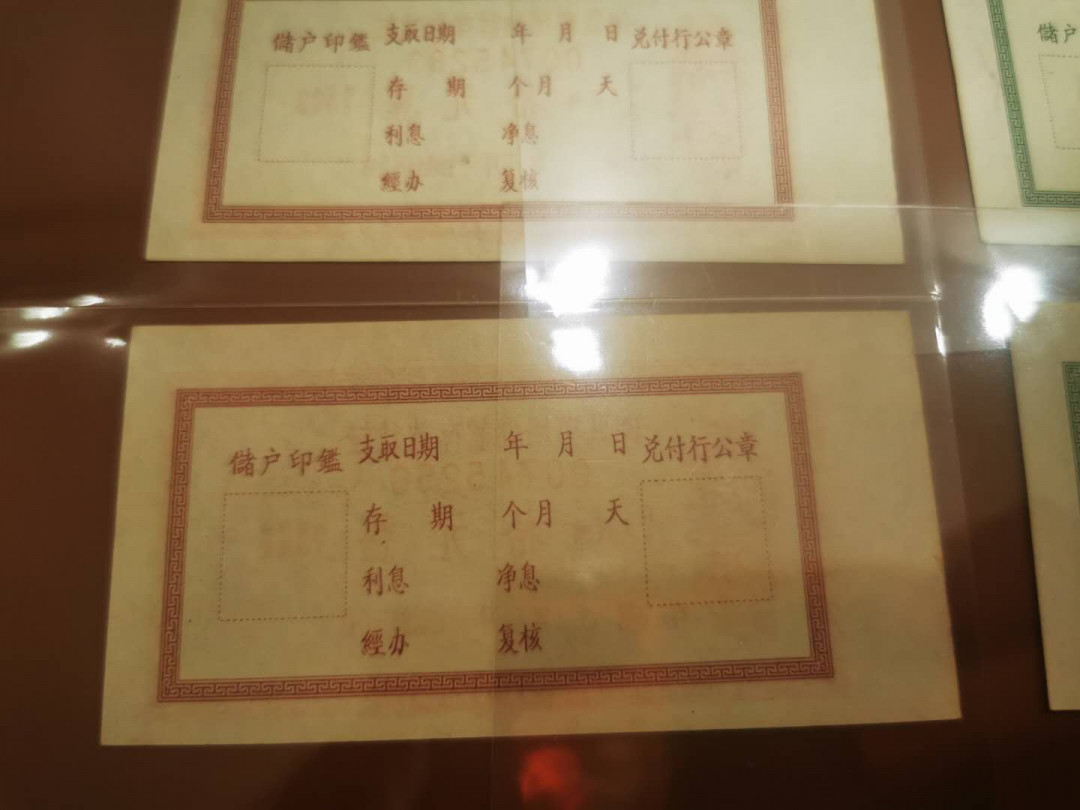 儲户印鑑 支取日期 年 月 日 兑付行公章
存 期 个月 天
利息 净息
經办 复核
儲户
儲户印鑑 支取日期 年 月 日 兑付行公章
存 期 个月 天
利息 净息
經办 复核